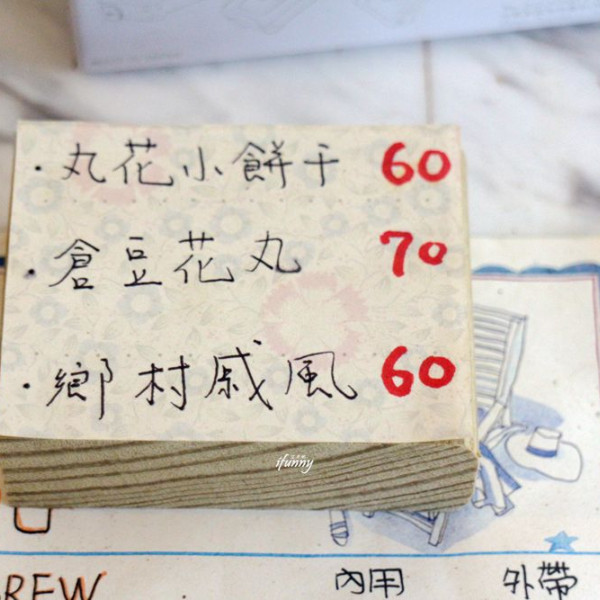 ・丸花小餅干 60
・倉豆花丸 70
・鄉村戚風 60
ifunny
REW
內用 外帶